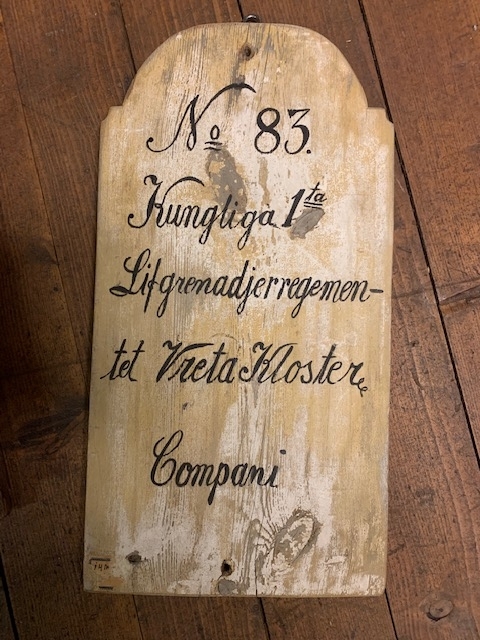 No 83.
Kungliga 1ta
Lifgrenadjerregemen-
tet Vreta Kloster
Compani